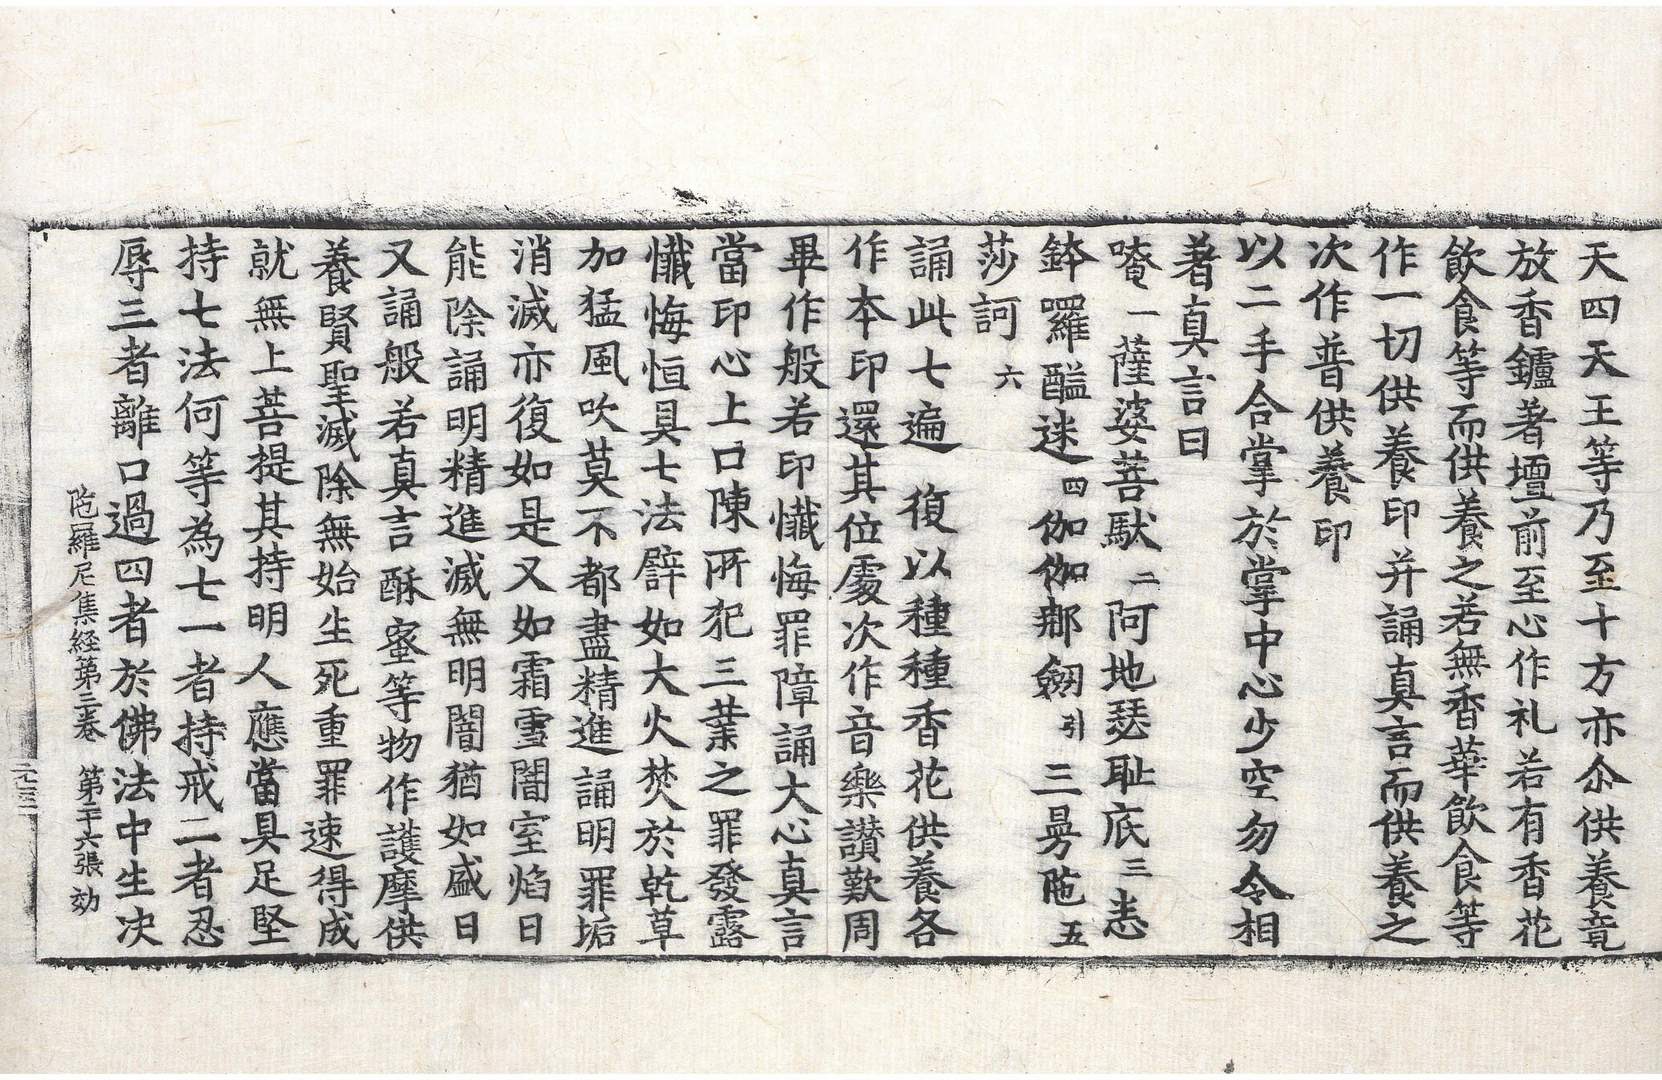 天四天王等乃至十方亦尒供養竟
放香鑪著壇前至心作礼若有香花
飲食等而供養之若無香華飲食等
作一切供養印并誦真言而供養之
次作普供養印
以二手合掌於掌中心少空勿令相
著真言曰
唵一薩婆菩馱二阿地瑟耻底三恚
鉢羅䤈迷四伽伽那劒引三曼陁五
莎訶六
誦此七遍 復以種種香花供養各
作本印還其位處次作音樂讃歎周
畢作般若印懺悔罪障誦大心真言
當印心上口陳所犯三業之罪發露
懺悔恒具七法譬如大火焚於乾草
加猛風吹莫不都盡精進誦明罪垢
消滅亦復如是又如霜雪闇室焰日
能除誦明精進滅無明闇猶如盛日
又誦般若真言酥蜜等物作護摩供
養賢聖滅除無始生死重罪速得成
就無上菩提其持明人應當具足堅
持七法何等為七一者持戒二者忍
辱三者離口過四者於佛法中生決
陁羅尼集経第三卷 第二十六張 効